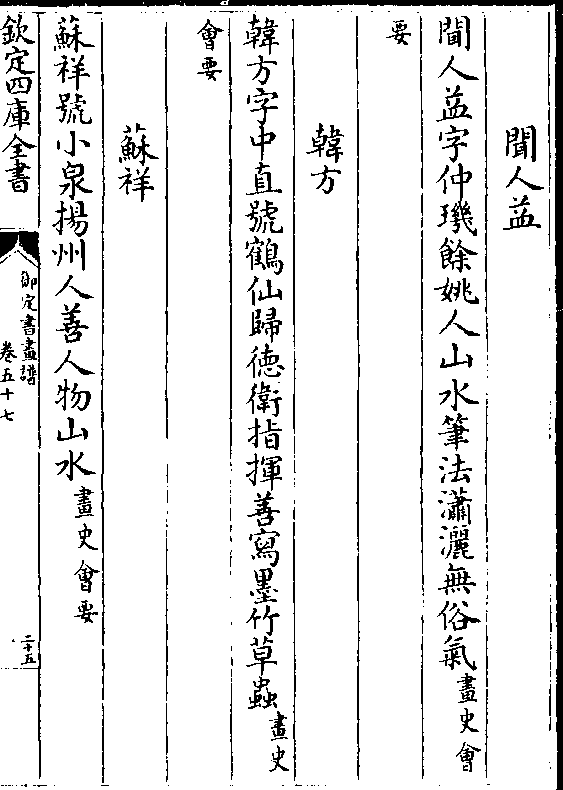 聞人益
聞人益字仲璣餘姚人山水筆法瀟灑無俗氣畫史會
要
韓方
韓方字中直號鶴仙歸德衛指揮善寫墨竹草蟲畫史
會要
蘇祥
蘇祥號小泉揚州人善人物山水畫史會要
欽定四庫全書
御定書畫譜
卷五十七
二十五